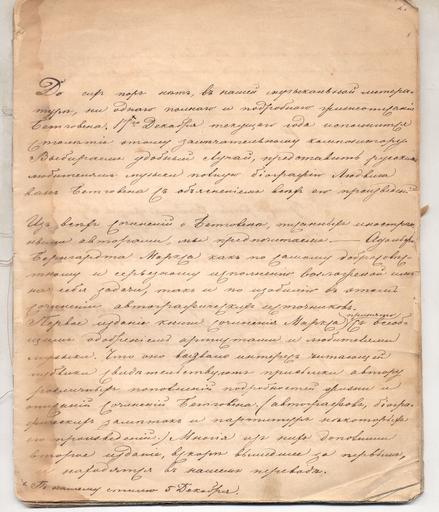 До сих пор нет, в нашей музыкальной литера-
туре, ни одного полнаго и подробнаго жизнеописанія
Бетговена. 17го Декабря текущего года исполнится
столѣтіе этому замѣчательному композитору
Выбираемъ удобный случай, представить русскимъ
любителямъ музыки полную біографію Людвига
ванъ Бетговена съ объясненіемъ всѣхъ его произведеній
Изъ всѣхъ сочиненій о Бетговенѣ, писанныхъ иностран-
ными авторами, мы предпочитаемъ Адольфа
Бернгарда Маркса какъ по самому добросовѣст-
ному и серьезному исполненію возложенной имъ
на себя задачи, такъ и по изобилію въ этомъ
сочиненіи автографическихъ источниковъ.
Первое изданіе книги сочиненія Маркса, принято съ всеоб-
щимъ одобреніемъ артистами и любителями
музыки. Что оно вызвало интересъ читающей
публики свидѣтельствуютъ присылки автору
различныхъ пополненій подробностей жизни и
сочиненій Бетговена. (автографовъ, біогра-
фическихъ замѣтокъ и партитуръ некоторыхъ
его произведеній.) Многія изъ нихъ дополнили
второе изданіе, вскорѣ вышедшее за первымъ,
и находятся въ нашемъ переводѣ.
По нашему стилю 5 Декабря.